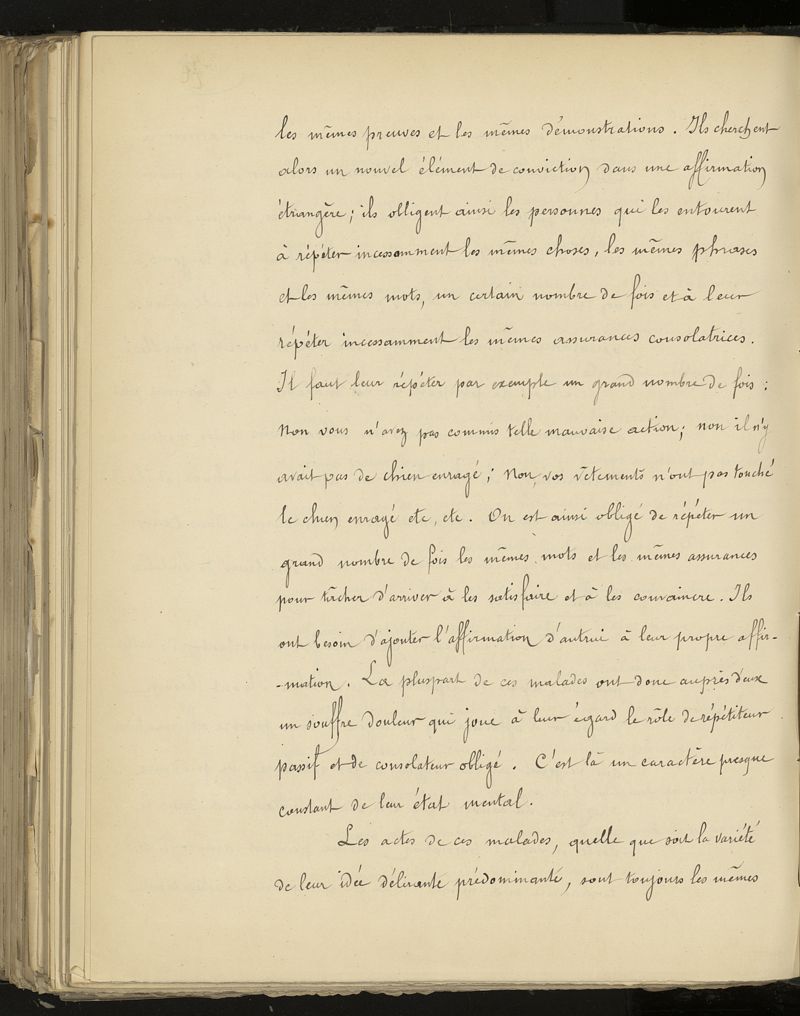 les mêmes preuves et les mêmes démonstrations. Ils cherchent
alors un nouvel élément de conviction dans une affirmation
étrangère; ils obligent ainsi les personnes qui les entourent
à répéter incessamment les mêmes choses, les mêmes phrases
et les mêmes mots, un certain nombre de fois et à leur
répéter incessamment les mêmes assurances consolatrices.
Il faut leur répéter par exemple un grand nombre de fois:
Non vous n'avez pas commis telle mauvaise action; non il n'y
avait pas de chien enragé; Non, vos vêtements n'ont pas touché
le chien enragé etc, etc. On est ainsi obligé de répéter un
grand nombre de fois les mêmes mots et les mêmes assurances
pour tâcher d'arriver à les satisfaire et à les convaincre. Ils
ont besoin d'ajouter l'affirmation d'autrui à leur propre affir-
-mation. La pluspart de ces malades ont donc auprès d'eux
un souffre douleur qui joue à leur égard le rôle de répétiteur
passif et de consolateur obligé. C'est là un caractère presque
constant de leur état mental.
Les actes de ces malades, quelle que soit la variété
de leur idée délirante prédominante, sont toujours les mêmes